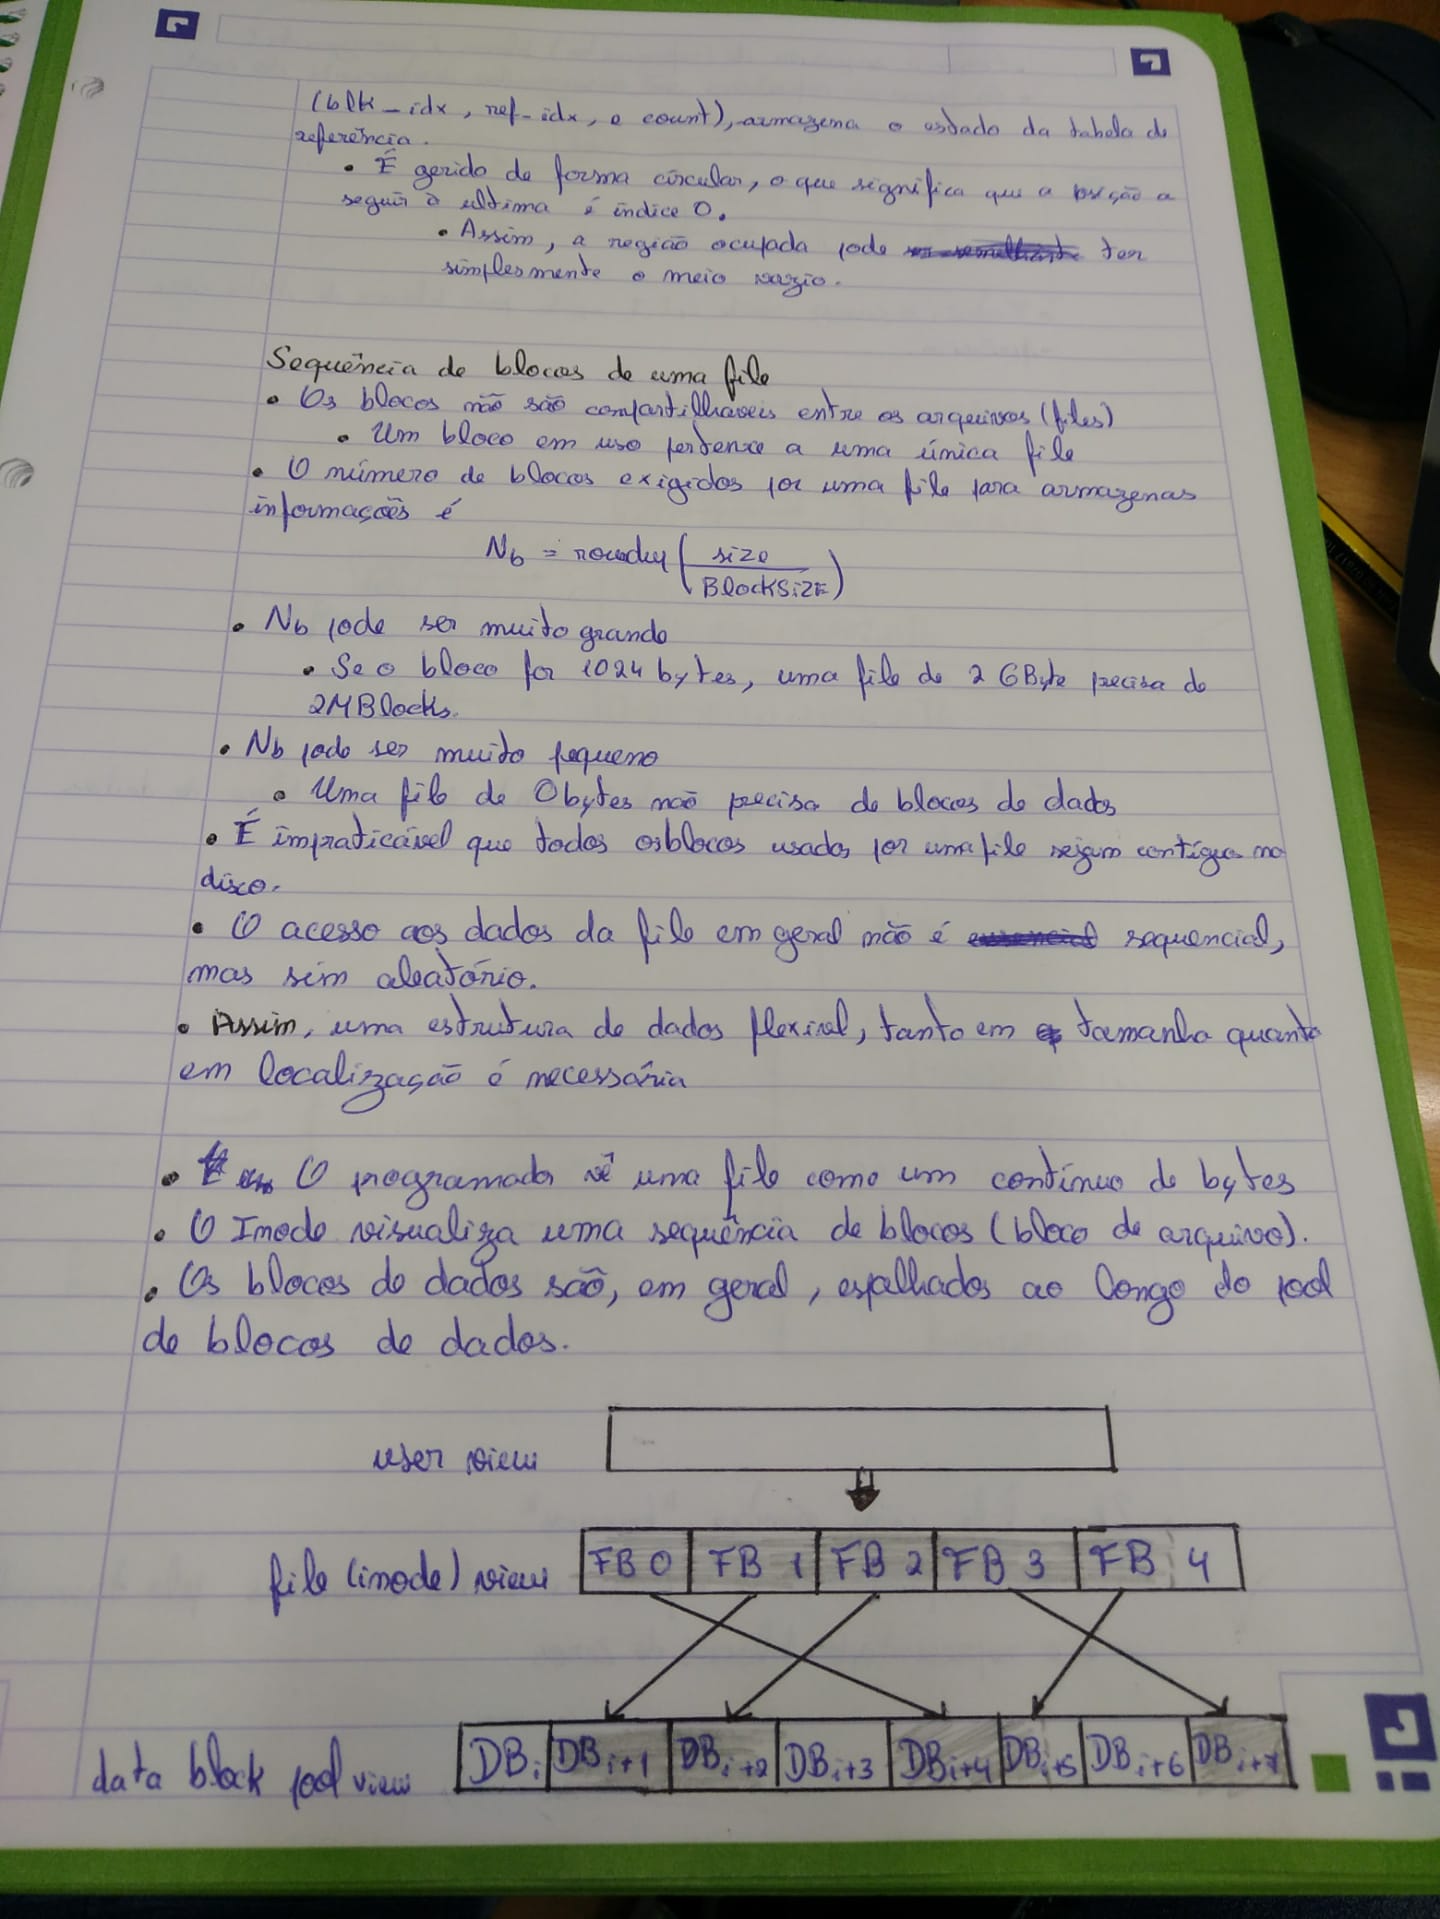 (blk_idx, ref_idx, e count), armazena o estado da tabela de
referência.
• É gerido de forma circular, o que significa que a posição a
seguir à ultima é índice 0.
• Assim, a região ocupada pode ter
simplesmente o meio vazio.
Sequência de blocos de uma file
• Os blocos não são compartilhaveis entre os arquivos (files)
• Um bloco em uso pertence a uma única file
• O número de blocos exigidos por uma file para armazenas
informações é
Nb = roundup (size
BlockSize)
• Nb pode ser muito grande
• Se o bloco for 1024 bytes, uma file de 2 GByte precisa de
2MBlocks.
• Nb pode ser muito pequeno
• Uma file de 0 bytes não precisa de blocos de dados
• É impraticável que todos os blocos usados por uma file sejam contíguos no
disco.
• O acesso aos dados da file em geral não é sequencial,
mas sim aleatório.
• Assim, uma estrutura de dados flexível, tanto em tamanho quanto
em localização é necessária
• O programador vê uma file como um contínuo de bytes
• O Inode visualiza uma sequência de blocos (bloco de arquivo).
• Os blocos de dados são, em geral, espalhados ao longo do pool
de blocos de dados.
user view
file (inode) view FB 0 FB 1 FB 2 FB 3 FB 4
data block pool view DBi DBi+1 DBi+2 DBi+3 DBi+4 DBi+5 DBi+6 DBi+7